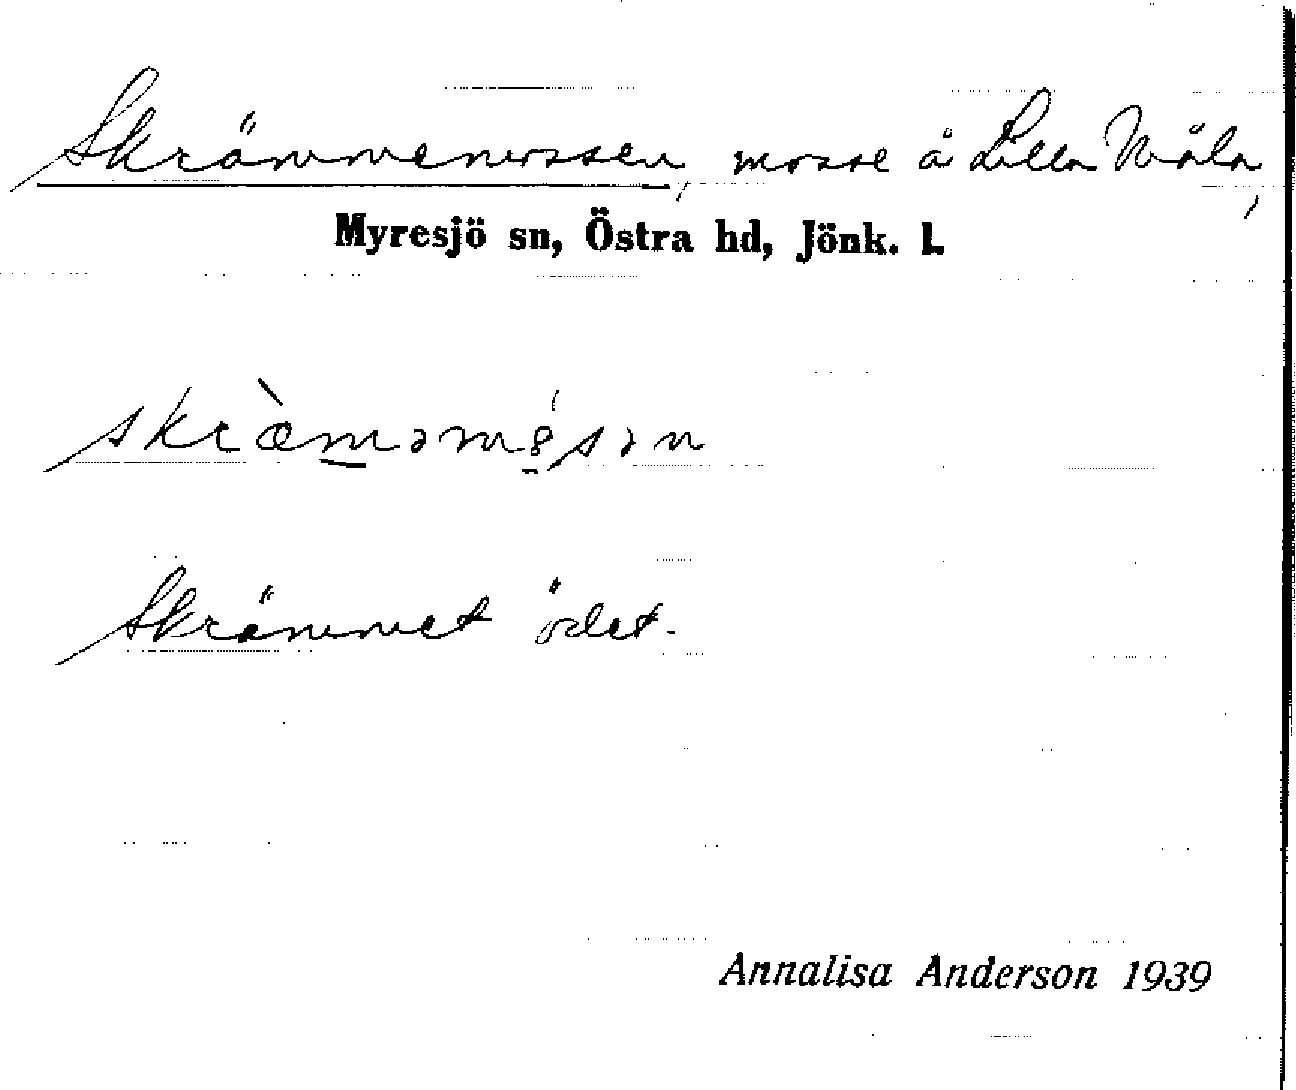 Skrämmemossen, mosse å Lilla Måla,
Myresjö sn, Östra hd, Jönk. l.
skræ̀məmȣ́sən
Skrämmet ödet.
Annalisa Anderson 1939